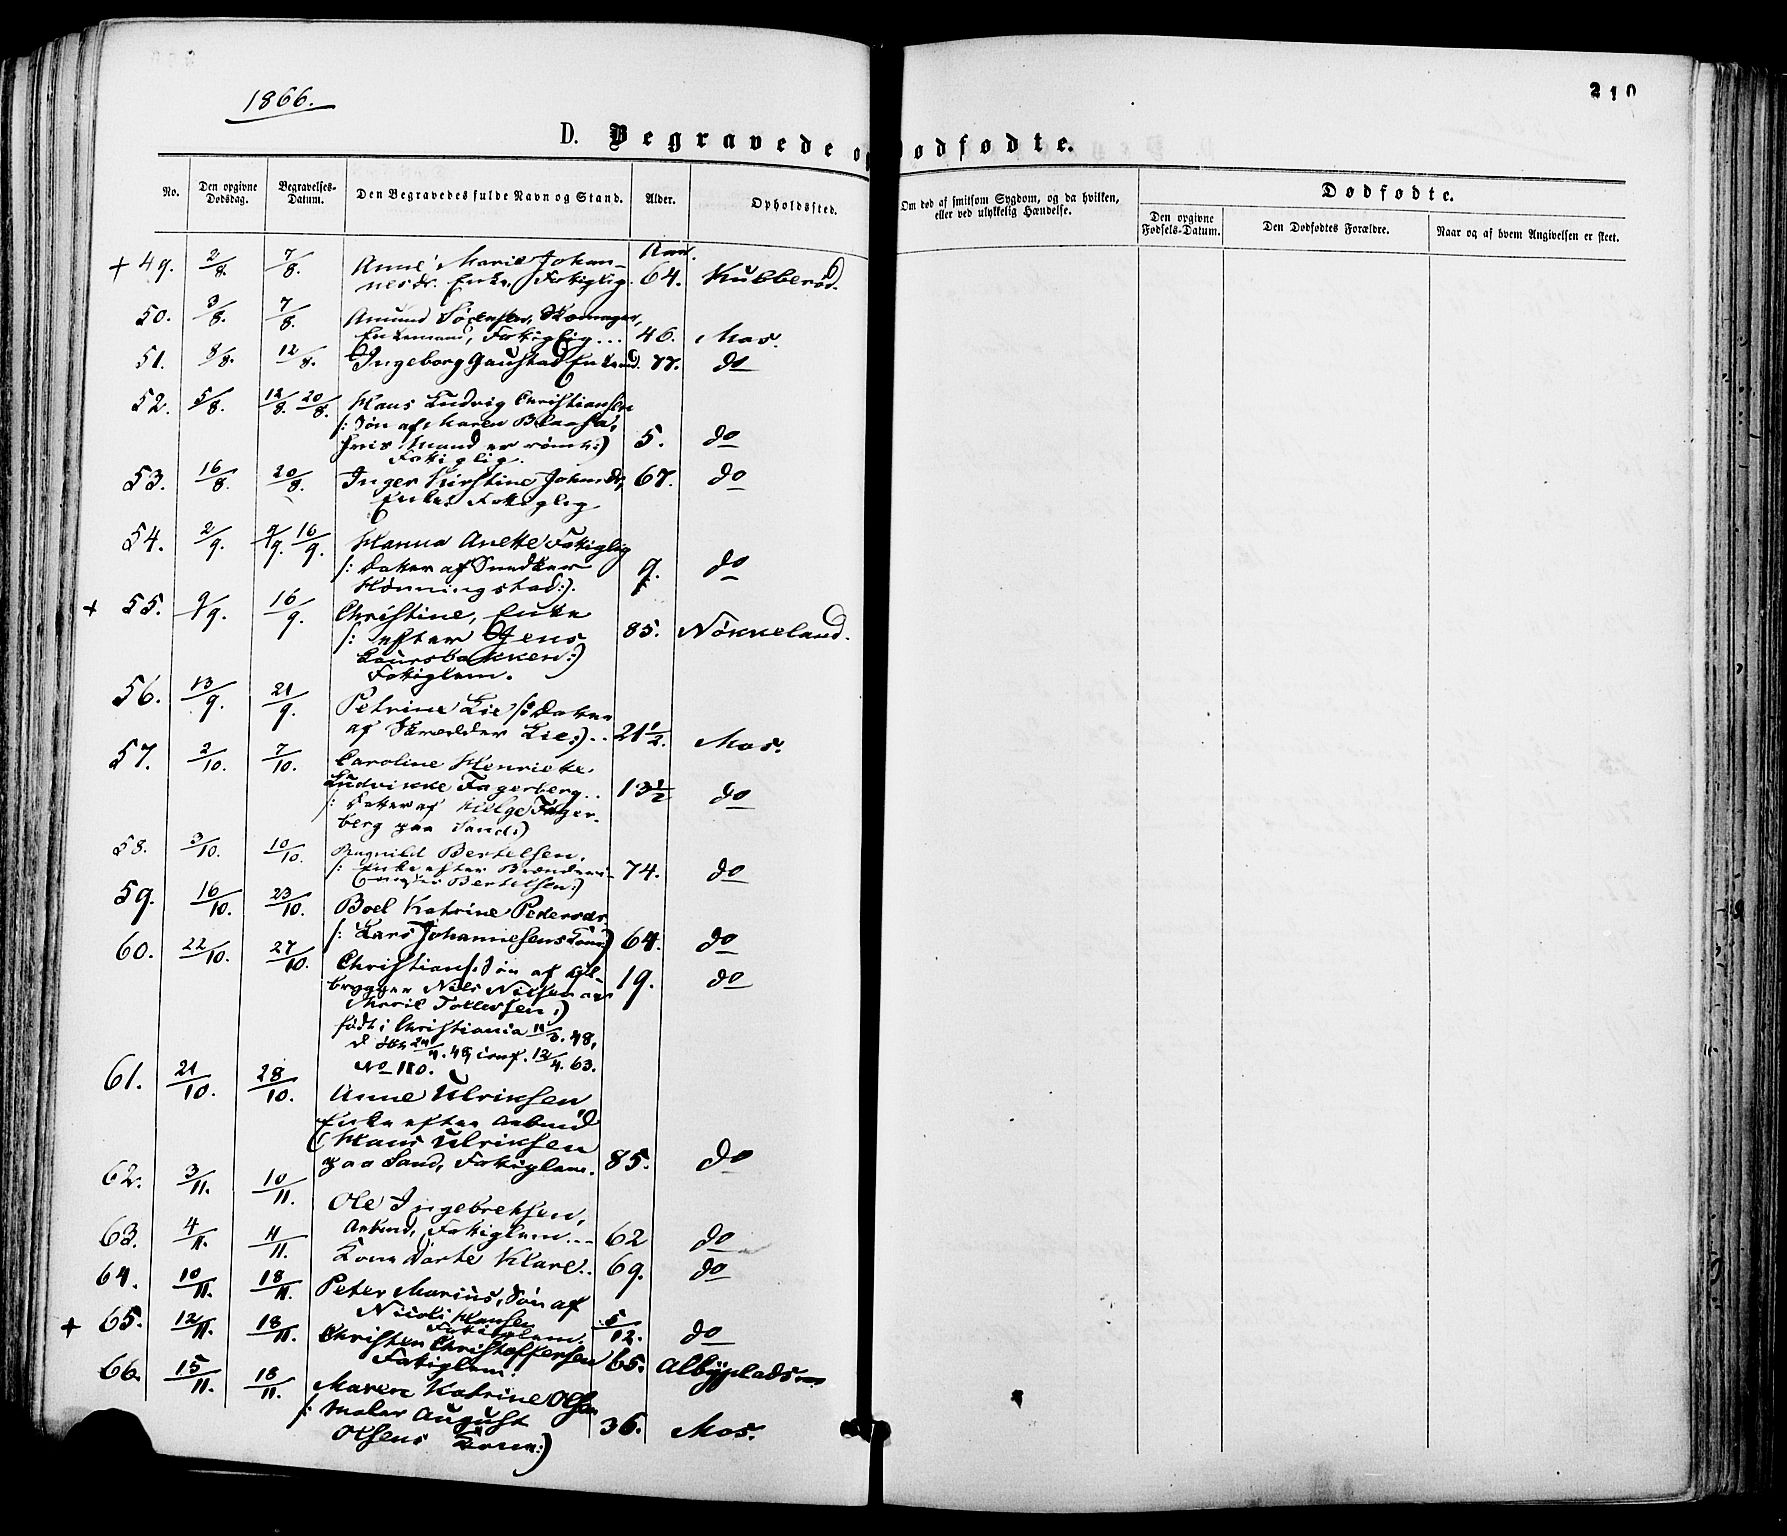 1866.
210
D. Begravede o
ødfødte.
No.
Den opgivne Dødsdag.
Begravelses-Datum.
Den Begravedes fulde Navn og Stand.
Alder.
Opholdssted.
Om død af smitsom Sygdom, og da hvilken, eller ved ulykkelig Hændelse.
Dødfødte.
Den opgivne Fødsels-Datum.
Den Dødfødtes Forældre.
Naar og af hvem Angivelsen er skeet.
+ 49. 2/8. 7/8. Anne Marie Johan- Aar.
nesdr. Enke, Fattiglig. 64. Kubberød.
50. 3/8. 7/8. Amund Sørensen, Skomager,
Enkemand, Fattiglig... 46. Mos.
51. 8/8. 12/8. Ingeborg Gaustad 77. do
52. 5/8. 12/8. 20/8. Hans Ludvig Christiansen
/: Søn af Maren
hvis Mand er rømt :) 5. do
Fattiglig.
53. 16/8. 20/8. Inger Kirstine 67. do
Enke, Fattiglig
54. 2/9. 9/9. 16/9. Hanna Anette Fattiglig
/: Datter af Snedker 9. do
Hønningstad :).
+ 55. 9/9. 16/9. Christine, Enke
/: efter Jens 85. Nøkkeland.
Laursbakken :)
Fattiglem.
56. 13/9. 21/9. Petrine Lie /: Datter
af Skrædder Lie :).. 21 1/2. Mos.
57. 2/10. 7/10. Caroline Henriette
Ludvikke Fagerberg.. 13 1/2 do
/: Datter af Helge Fager-
berg paa Sand :)
58. 3/10. 10/10. Ragnild Bertelsen,
/: Enke efter 74. do
Bertelsen :)
59. 16/10. 23/10. Boel Katrine Pedersdr.
/: Lars Johannesens Kone :) 64. do
60. 22/10. 27/10. Christian, Søn af Øl-
brygger Nils Nilsen og 19. do
Marie Tollefsen :)
født i Christiania 11/3. 48,
døbt 24/4. 48, conf. 12/4. 63.
No 110.
61. 21/10. 28/10. Anne Ulriksen
Enke efter Arbmd
(Hans Ulriksen
paa Sand, Fattiglem. 85. do
62. 3/11. 10/11. Ole Ingebretsen,
Arbmd, Fattiglem... 62 do
63. 4/11. 11/11. Kone Dorte Klare.. 69. do
64. 10/11. 18/11. Peter Marius, Søn af
Nicoli Hansen 5/12. do
Fattiglem.
+ 65. 12/11. 18/11. Christen Christoffersen
Fattiglem. 65. Albyplads
66. 15/11. 18/11. Maren Katrine Olsen
/: Maler August 36. Mos.
Olsens Kone :)